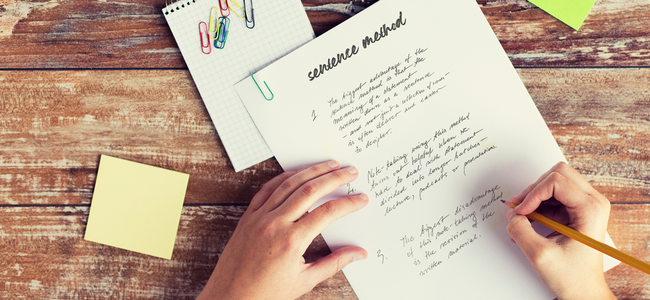 sentence method
1. The biggest advantage of the
sentence method is that the
meaning of a statement
written down as a sentence
- and not just a collection of words
- is often clearer and easier
to decipher.
2. Note-taking using this method
turns out helpful when we
have to deal with statement
divided into longer batches -
lecture, podcasts or presentation.
3. The biggest disadvantage
of this note-taking method
is the revision of the
written material.